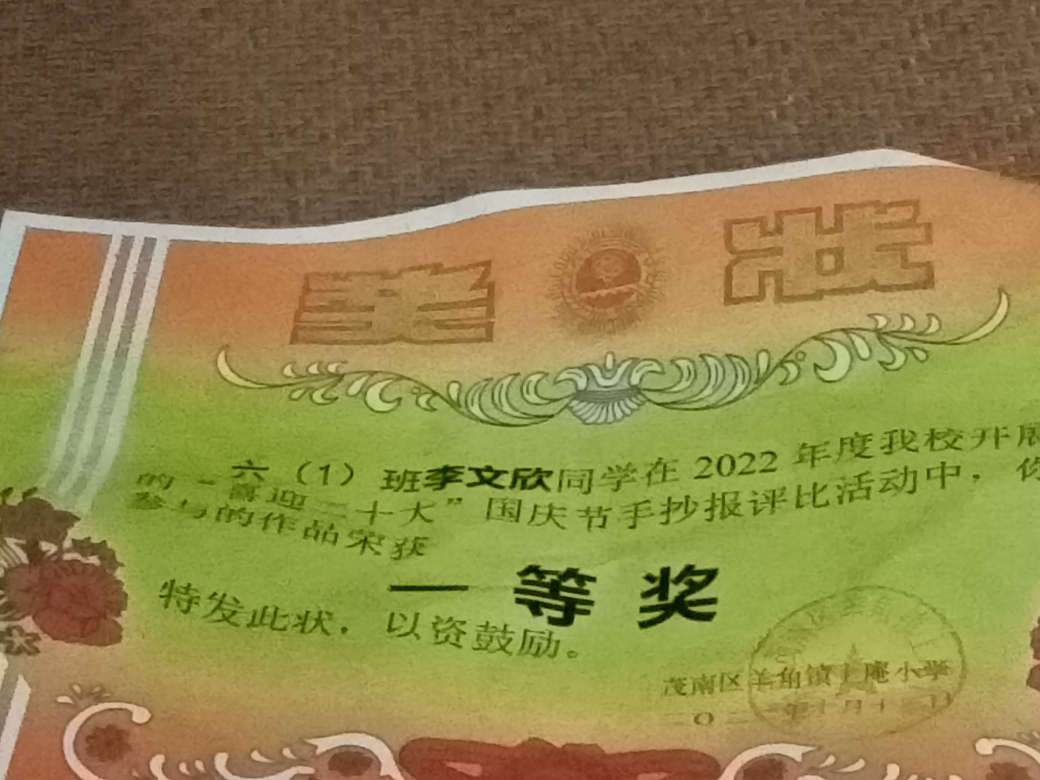 奖状
六（1）班李文欣同学在 2022 年度我校开展
的“喜迎二十大”国庆节手抄报评比活动中，你
参与的作品荣获
一等奖
特发此状，以资鼓励。
茂南区羊角镇上庵小学